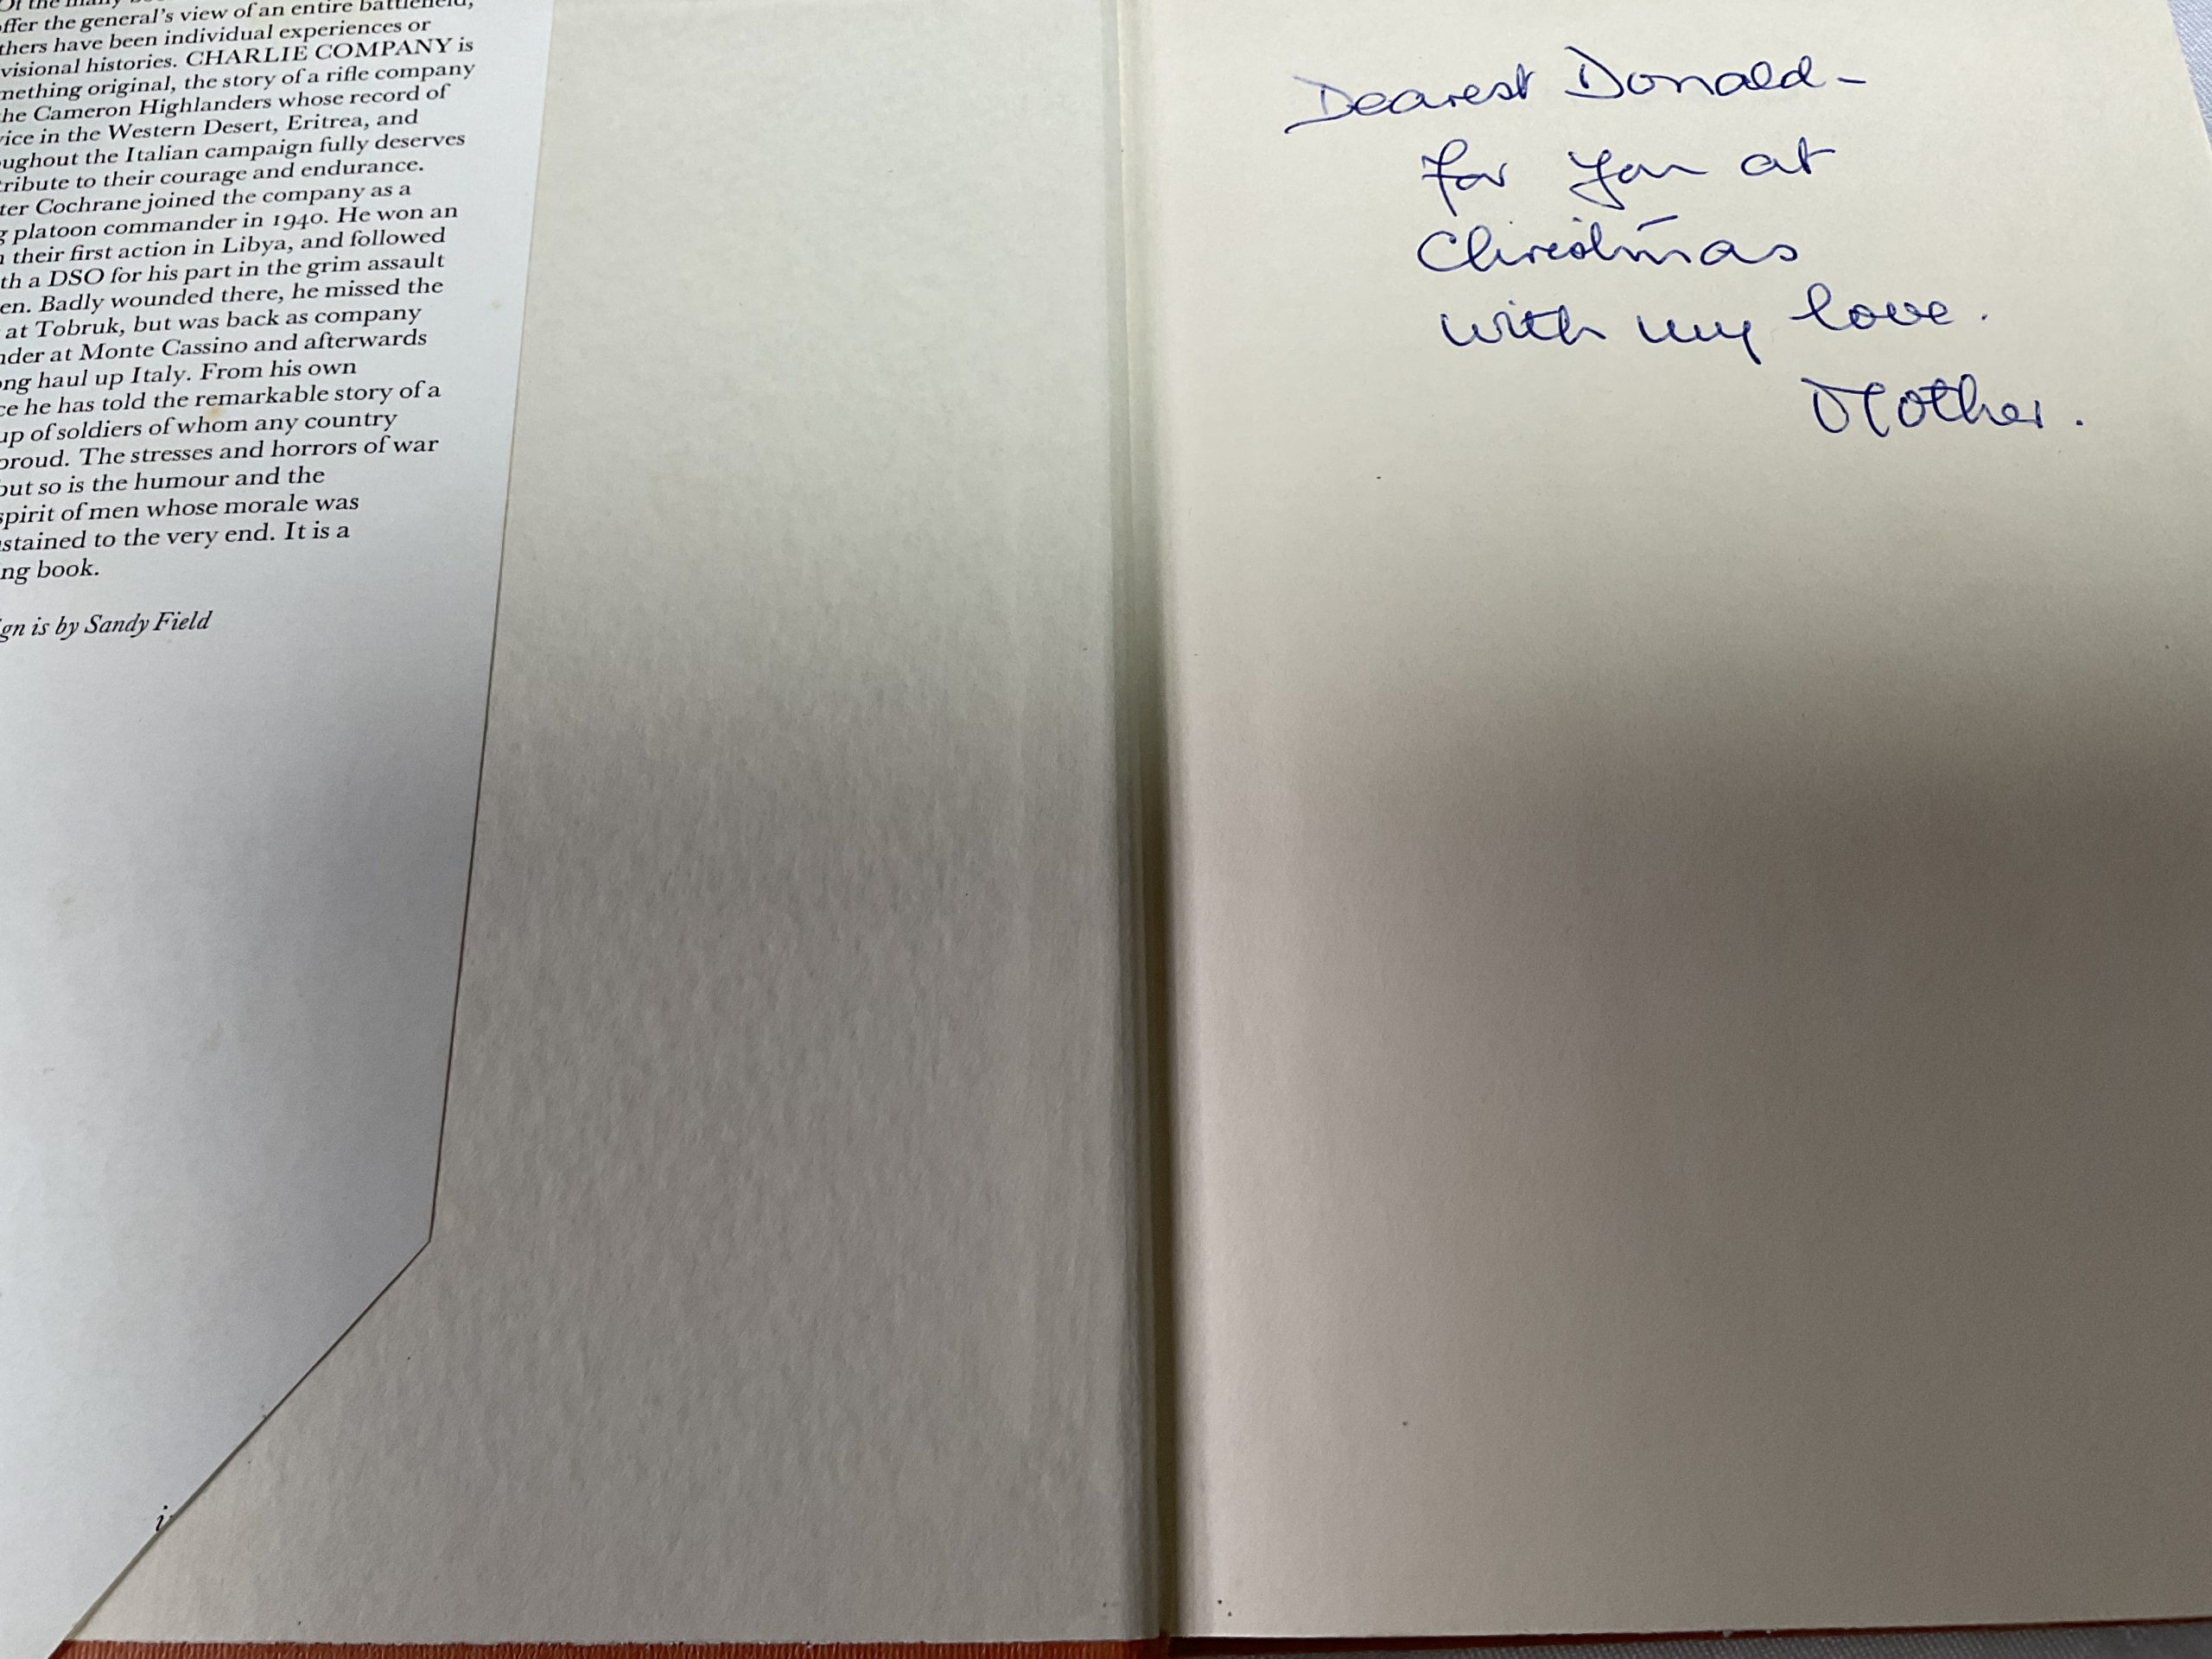 Of the many
offer the general's view of an entire battlefield,
others have been individual experiences or
visional histories. CHARLIE COMPANY is
mething original, the story of a rifle company
the Cameron Highlanders whose record of
vice in the Western Desert, Eritrea, and
oughout the Italian campaign fully deserves
tribute to their courage and endurance.
ter Cochrane joined the company as a
g platoon commander in 1940. He won an
n their first action in Libya, and followed
th a DSO for his part in the grim assault
en. Badly wounded there, he missed the
at Tobruk, but was back as company
nder at Monte Cassino and afterwards
ong haul up Italy. From his own
ce he has told the remarkable story of a
up of soldiers of whom any country
proud. The stresses and horrors of war
but so is the humour and the
spirit of men whose morale was
stained to the very end. It is a
ing book.
ign is by Sandy Field
Dearest Donald-
for you at
Christmas
with my love.
Mother.